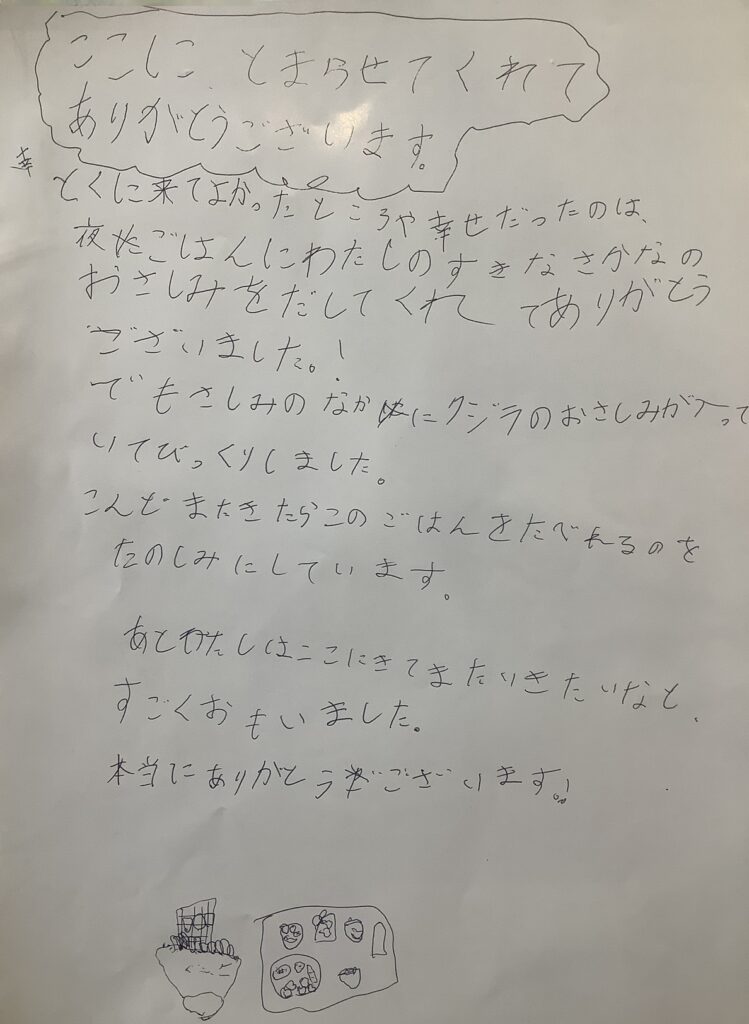 ここに とまらせてくれて
ありがとうございます。
幸
とくに来てよかったところや幸せだったのは、
夜ごはんにわたしのすきなさかなの
おさしみをだしてくれてありがとう
ございました。!
でもさしみのなかにクジラのおさしみが入って
いてびっくりしました。
こんどまたきたらこのごはんをたべれるのを
たのしみにしています。
あとわたしはここにきてまたいきたいなと、
すごくおもいました。
本当にありがとうございます。!